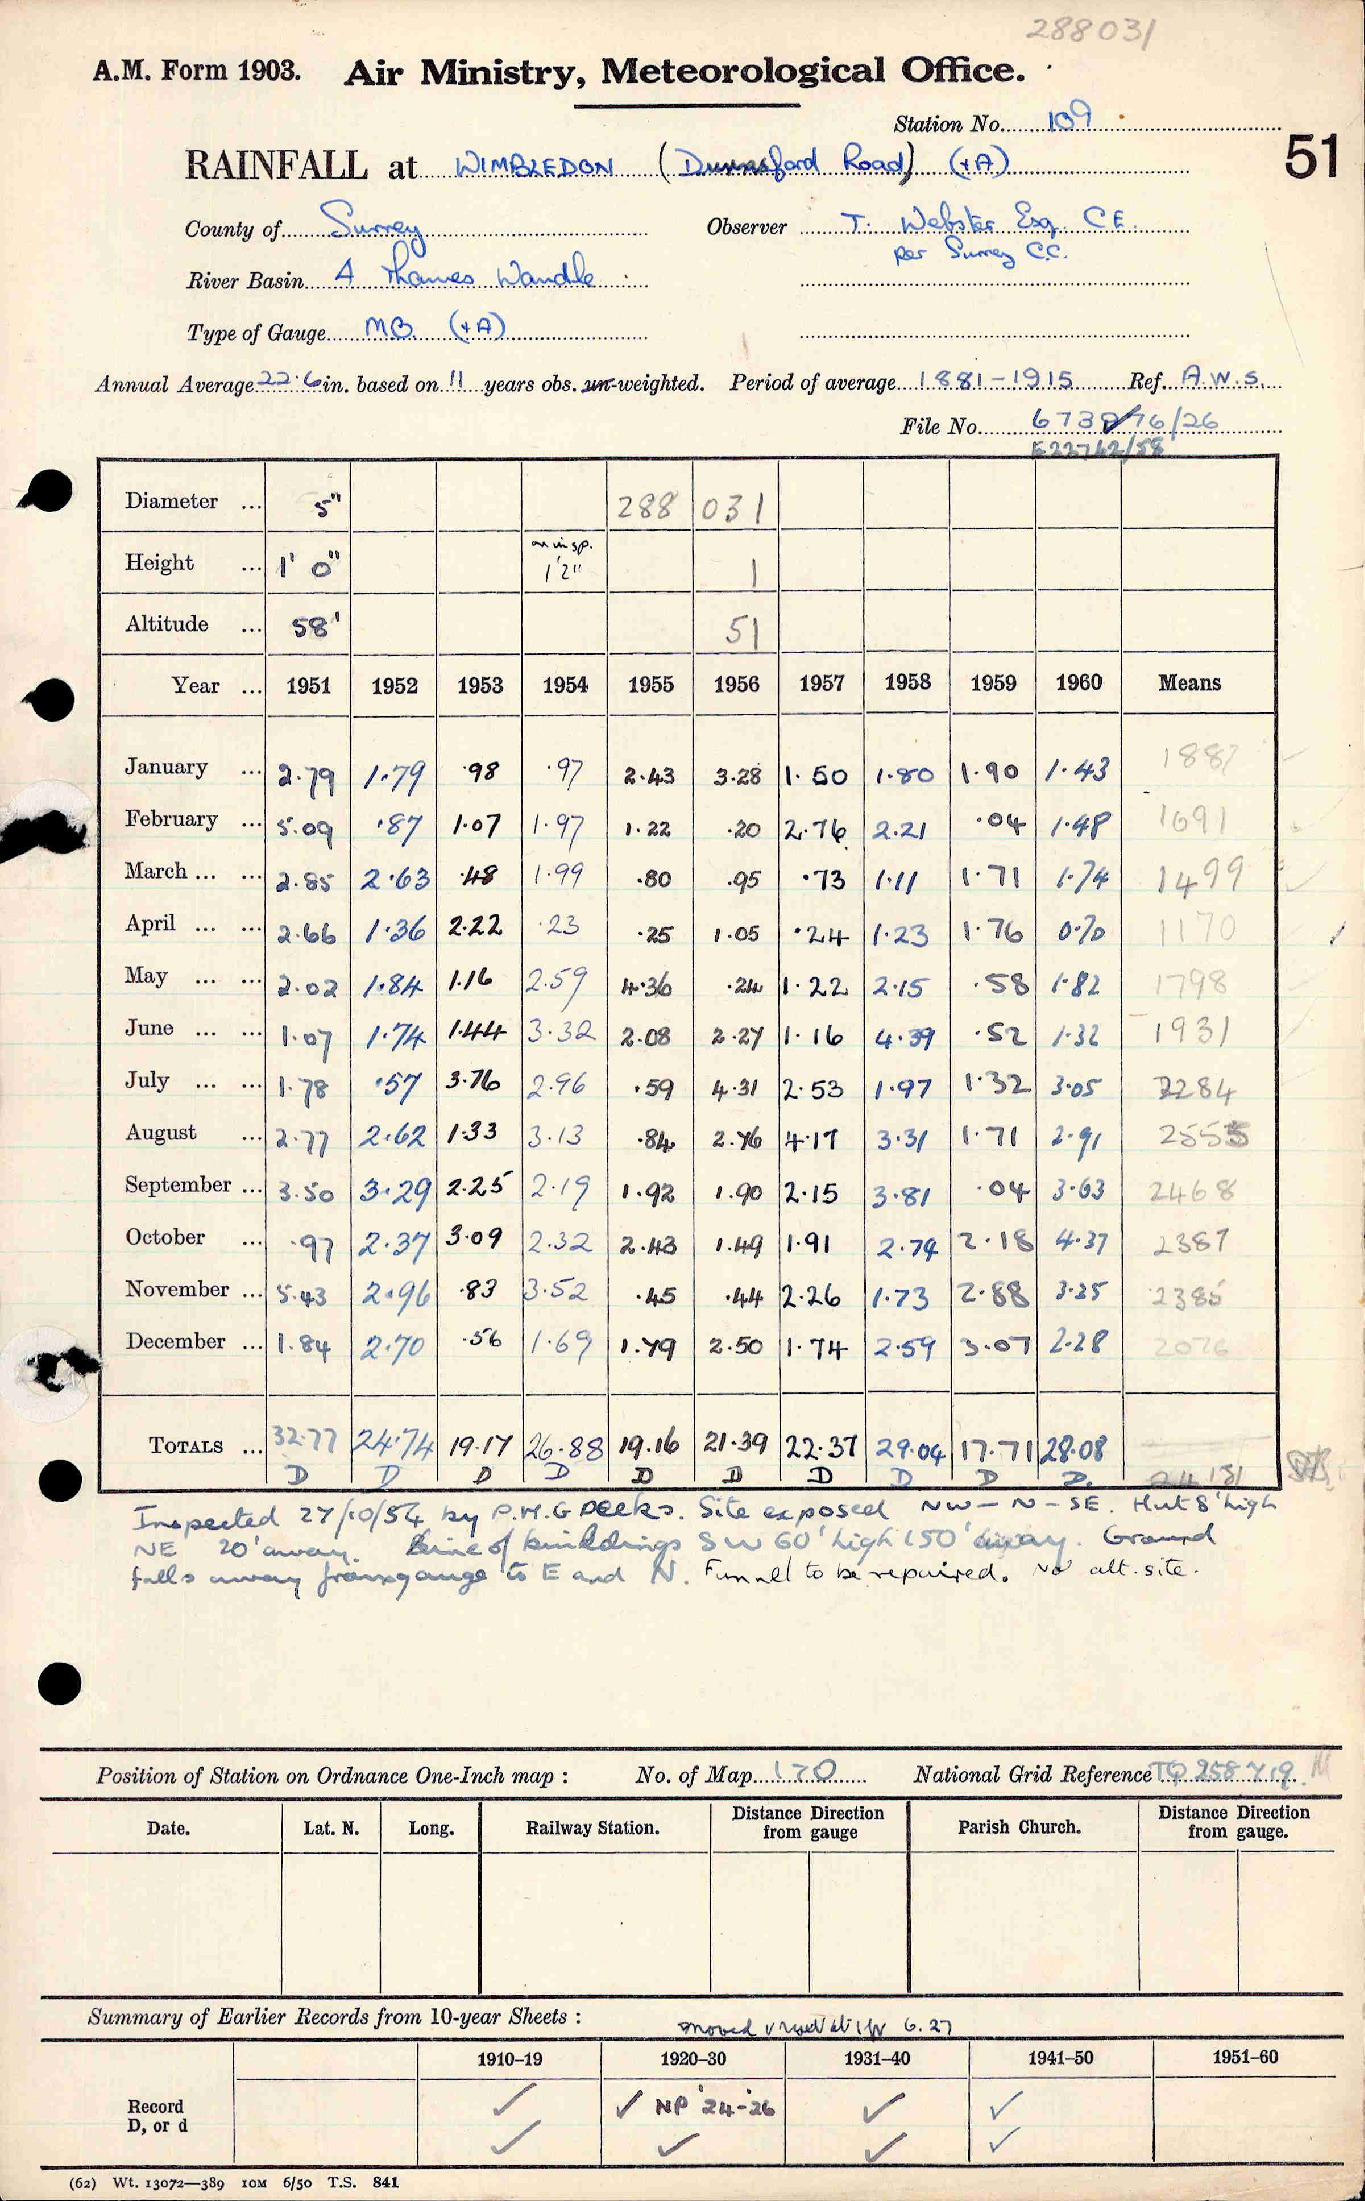 288031
A.M. Form 1903. Air Ministry, Meteorological Office.
Station No. 109
RAINFALL at WIMBLEDON (Durnsford Road) (+A) 51
County of Surrey Observer T. Webster Esq. C.E.
per Surrey C.C.
River Basin A Thames Wandle
Type of Gauge M.O. (+A)
Annual Average 22.6 in. based on 11 years obs. un-weighted. Period of average 1881-1915 Ref. A.W.S.
File No. 6738/76/26
E22762/58
Diameter ... 5" 288 031
Height ... 1' 0" on insp. 1'2" 1
Altitude ... 58' 51
Year ... 1951 1952 1953 1954 1955 1956 1957 1958 1959 1960 Means
January ... 2.79 1.79 .98 .97 2.43 3.28 1.50 1.80 1.90 1.43 1887
February ... 5.09 .87 1.07 1.97 1.22 .20 2.76 2.21 .04 1.48 1691
March ... ... 2.85 2.63 .48 1.99 .80 .95 .73 1.11 1.71 1.74 1499
April ... ... 2.66 1.36 2.22 .23 .25 1.05 .24 1.23 1.76 0.70 1170
May ... ... 2.02 1.84 1.16 2.59 4.36 .24 1.22 2.15 .58 1.82 1798
June ... ... 1.07 1.74 1.44 3.32 2.08 2.27 1.16 4.39 .52 1.32 1931
July ... ... 1.78 .57 3.76 2.96 .59 4.31 2.53 1.97 1.32 3.05 2284
August ... 2.77 2.62 1.33 3.13 .84 2.76 4.17 3.31 1.71 2.91 2555
September ... 3.50 3.29 2.25 2.19 1.92 1.90 2.15 3.81 .04 3.63 2468
October ... .97 2.37 3.09 2.32 2.43 1.49 1.91 2.74 2.18 4.37 2387
November ... 5.43 2.96 .83 3.52 .45 .44 2.26 1.73 2.88 3.35 2385
December ... 1.84 2.70 .56 1.69 1.79 2.50 1.74 2.59 3.07 2.28 2076
TOTALS ... 32.77 24.74 19.17 26.88 19.16 21.39 22.37 29.04 17.71 28.08
D D D D D D D D D D. 24131
Inspected 27/10/54 by P.M.G Deeks. Site exposed NW - N - SE. Hut 8' high
NE 20' away. Line of buildings SW 60' high 150' away. Ground
falls away from gauge to E and N. Funnel to be repaired. No alt. site.
Position of Station on Ordnance One-Inch map : No. of Map 170 National Grid Reference TQ 258 719
Date. Lat. N. Long. Railway Station. Distance Direction from gauge Parish Church. Distance Direction from gauge.
Summary of Earlier Records from 10-year Sheets :
moved 6.27
1910–19 1920–30 1931–40 1941–50 1951–60
Record ✓ ✓ NP '24-'26 ✓ ✓
D, or d ✓ ✓ ✓ ✓
(62) Wt. 13072—389 10M 6/50 T.S. 841